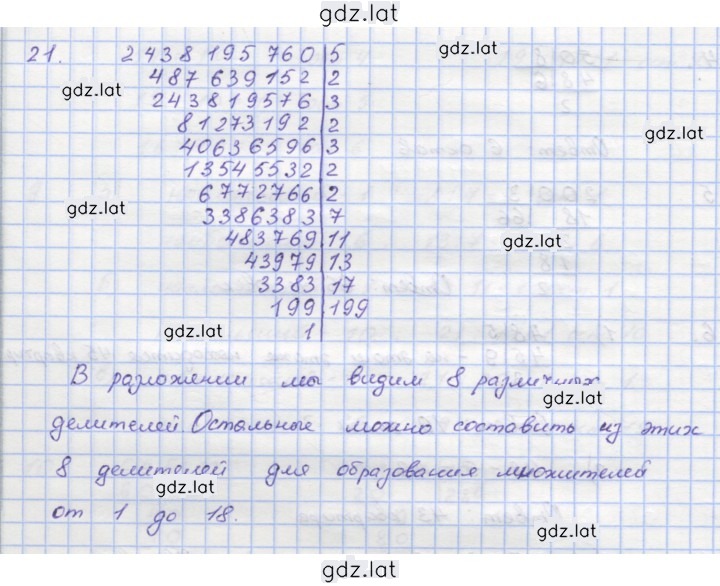 gdz.lat
21. 2438195760 | 5
gdz.lat
487639152 | 2
gdz.lat
243819576 | 3
81273192 | 2
gdz.lat
40636596 | 3
13545532 | 2
6772766 | 2
gdz.lat
3386383 | 7
483769 | 11
gdz.lat
43979 | 13
3383 | 17
199 | 199
gdz.lat
1
В разложении мы видим 8 различных
gdz.lat
делителей Остальные можно составить из этих
8 делителей для образования множителей
gdz.lat
от 1 до 18.
gdz.lat
gdz.lat